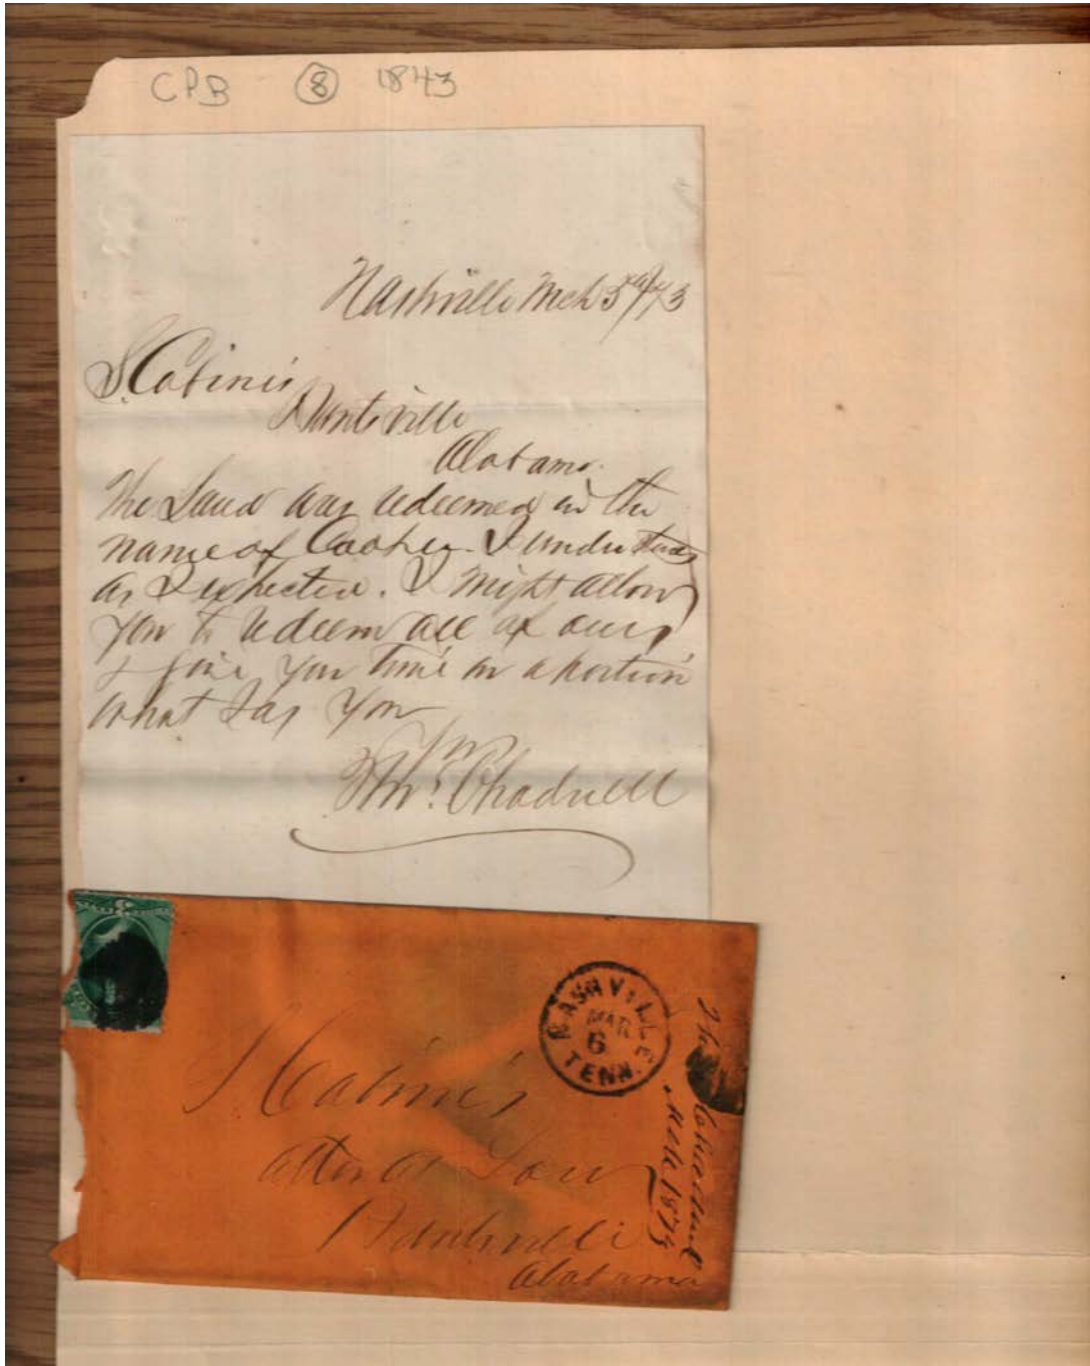 CPB 8 1843
Nashville Mch 5th/73
S. Cabinis
Huntsville
Alabama.
The Land was redeemed in the
name of Cooper. I understand
as I expected. I might allow
you to redeem all of ours
& give you time on a portion
What say you
Wm Chadwell
NASHVILLE
MAR
6
TENN.
S Cabinis
Atto at Law
Huntsville
Alabama
Chadwell
Mch 1873